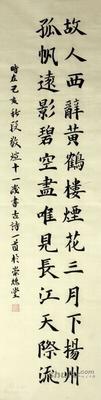 故人西辭黃鶴樓煙花三月下揚州
孤帆遠影碧空盡唯見長江天際流
時在己亥秋段十一歲書古詩一首於堂